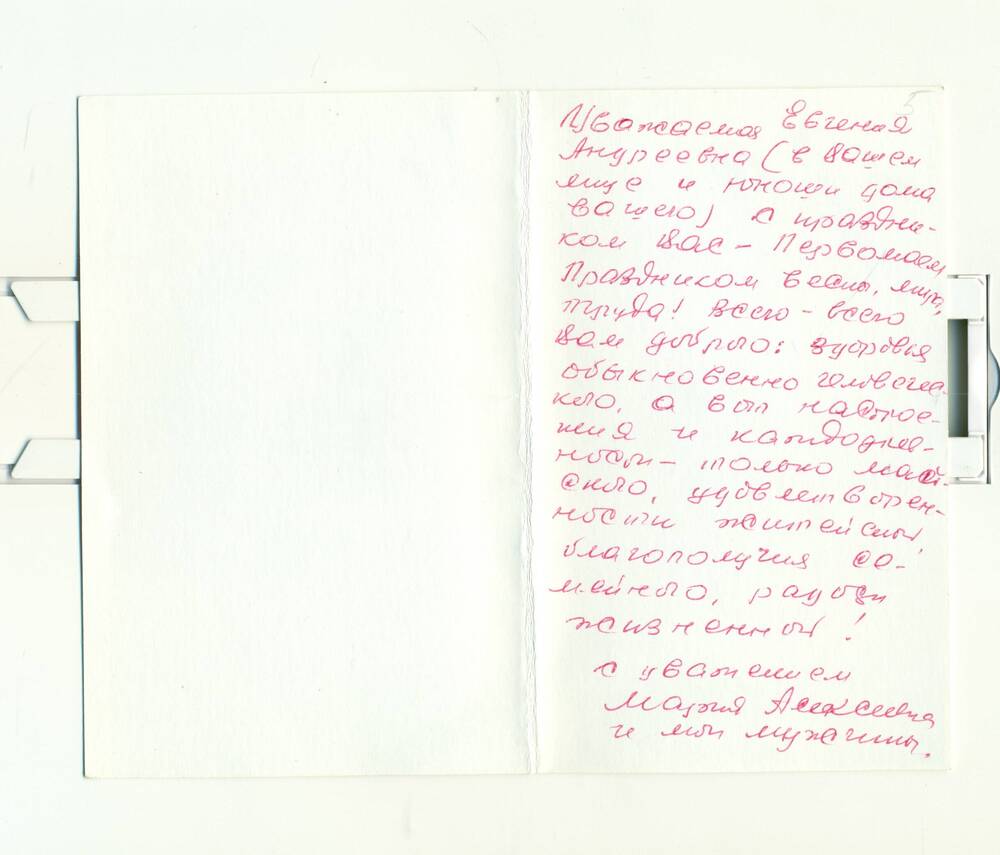 5
Уважаемая Евгения
Андреевна (в Вашем
лице и юноши дома
вашего) с праздни-
ком Вас – Первомаем
Праздником весны, мира,
труда! Всего – всего
Вам доброго: здоровья
обыкновенно человечес-
кого, а вот настрое-
ния и каждоднев-
ности – только май-
ского, удовлетворен-
ности житейской
благополучия се-
мейного, радости
жизненной!
с уважением
Мария Алексеевна
и мои мужчины.